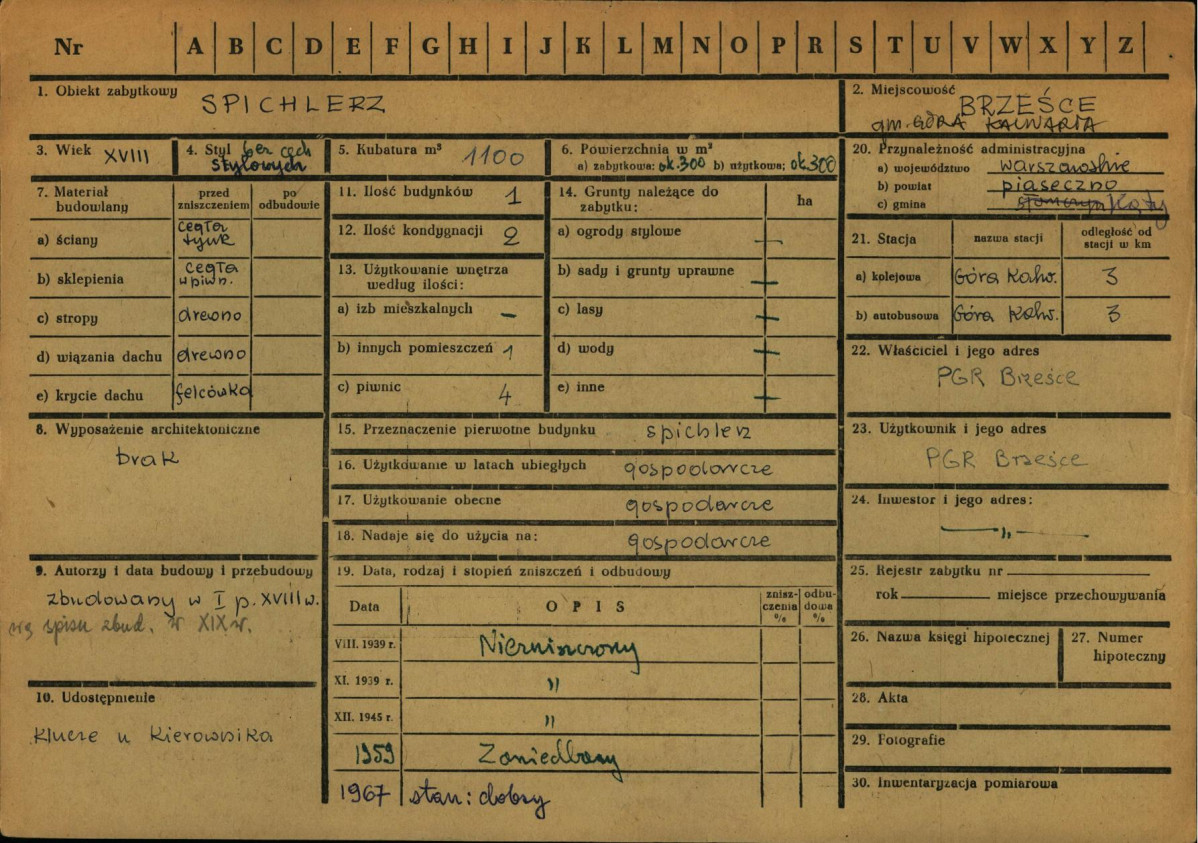 Nr A B C D E F G H I J K L M N O P R S T U V W X Y Z
1. Obiekt zabytkowy SPICHLERZ
2. Miejscowość BRZEŚCE
gm. GÓRA KALWARIA
3. Wiek XVIII
4. Styl bez cech
stylowych
5. Kubatura m³ 1100
6. Powierzchnia w m²
a) zabytkowa: ok. 300 b) użytkowa: ok. 300
7. Materiał
budowlany
przed
zniszczeniem
po
odbudowie
a) ściany cegła
tynk
b) sklepienia cegła
w piwn.
c) stropy drewno
d) wiązania dachu drewno
e) krycie dachu felcówka
8. Wyposażenie architektoniczne
brak
9. Autorzy i data budowy i przebudowy
zbudowany w I p. XVIII w.
wg spisu zbud. w XIX w.
10. Udostępnienie
Klucze u Kierownika
11. Ilość budynków 1
12. Ilość kondygnacji 2
13. Użytkowanie wnętrza
według ilości:
a) izb mieszkalnych –
b) innych pomieszczeń 1
c) piwnic 4
14. Grunty należące do
zabytku:
ha
a) ogrody stylowe –
b) sady i grunty uprawne –
c) lasy –
d) wody –
e) inne –
15. Przeznaczenie pierwotne budynku spichlerz
16. Użytkowanie w latach ubiegłych gospodarcze
17. Użytkowanie obecne gospodarcze
18. Nadaje się do użycia na: gospodarcze
19. Data, rodzaj i stopień zniszczeń i odbudowy
Data
OPIS
znisz-
czenia
%
odbu-
dowa
%
VIII. 1939 r. Niezniszczony
XI. 1939 r. "
XII. 1945 r. "
1959 Zaniedbany
1967 stan: dobry
20. Przynależność administracyjna
a) województwo warszawskie
b) powiat piaseczno
c) gmina Kąty
21. Stacja
nazwa stacji
odległość od
stacji w km
a) kolejowa Góra Kalw. 3
b) autobusowa Góra Kalw. 3
22. Właściciel i jego adres
PGR Brześce
23. Użytkownik i jego adres
PGR Brześce
24. Inwestor i jego adres:
— " —
25. Rejestr zabytku nr
rok miejsce przechowywania
26. Nazwa księgi hipotecznej
27. Numer
hipoteczny
28. Akta
29. Fotografie
30. Inwentaryzacja pomiarowa